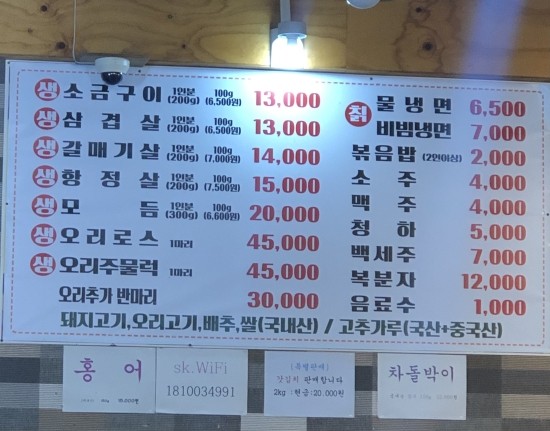 생 소금구이 1인분 (200g) 100g (6,500원) 13,000
생 삼겹살 1인분 (200g) 100g (6,500원) 13,000
생 갈매기살 1인분 (200g) 100g (7,000원) 14,000
생 항정살 1인분 (200g) 100g (7,500원) 15,000
생 모듬 1인분 (300g) 100g (6,600원) 20,000
생 오리로스 1마리 45,000
생 오리주물럭 1마리 45,000
오리추가 반마리 30,000
칡 물냉면 6,500
비빔냉면 7,000
볶음밥 (2인이상) 2,000
소주 4,000
맥주 4,000
청하 5,000
백세주 7,000
복분자 12,000
음료수 1,000
돼지고기,오리고기,배추,쌀(국내산) / 고추가루(국산+중국산)
홍어
sk.WiFi
1810034991
갓김치 판매합니다
2kg :현금:20.000원
차돌박이